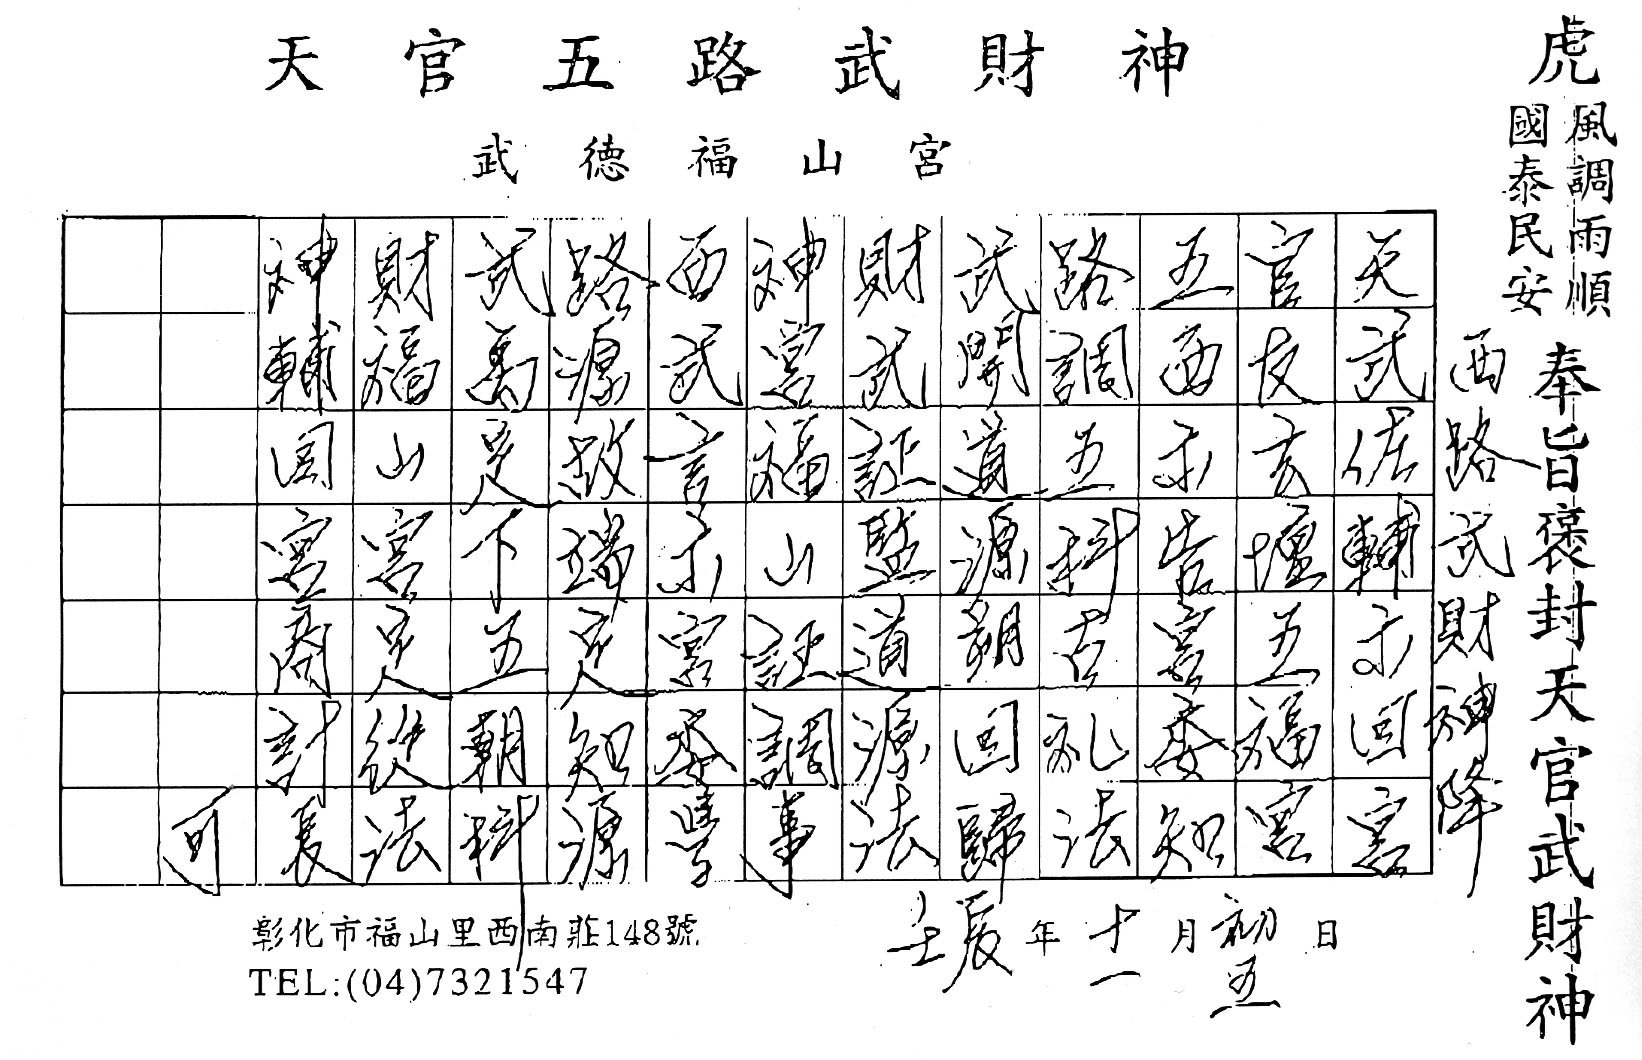 天官五路武財神
武德福山宮
虎
風調雨順
國泰民安
奉旨褒封天官武財神
西路武財神降
天武佐輔示回宮
官友玄壇五福宮
五西示告宮委知
路調五科古礼法
武開道源朝回歸
財武証監道源法
神宮福山証調事
西武言示宮委學
路源致端定知源
武萬定下五朝科
財福山宮定從法
神輔宮商討展
可
壬辰年十一月初五日
彰化市福山里西南莊148號
TEL:(04)7321547